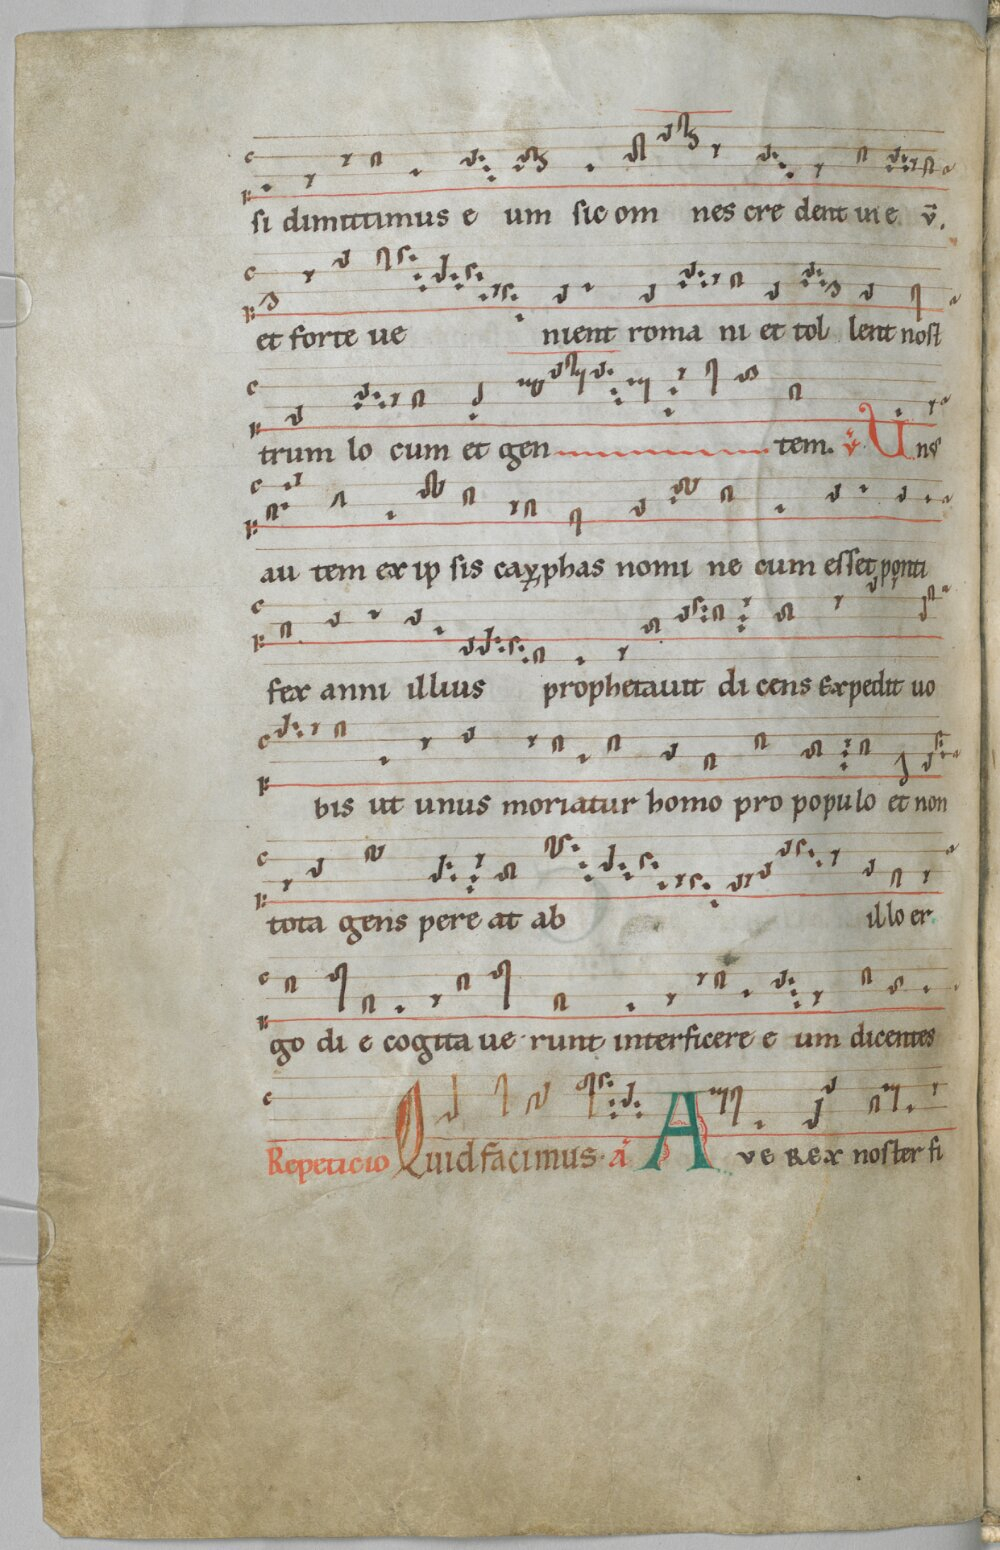 si dimittimus e um sic om nes cre dent in e v̄.
et forte ue nient roma ni et tol lent nost
trum lo cum et gen tem. ℣ Unꝰ
au tem ex ip sis cayphas nomi ne cum esset ponti
fex anni illius prophetauit di cens Expedit uo
bis ut unus moriatur homo pro populo et non
tota gens pere at ab illo er
go di e cogita ue runt interficere e um dicentes
Repeticio Quid facimus. a᷑ A ve Rex noster fi